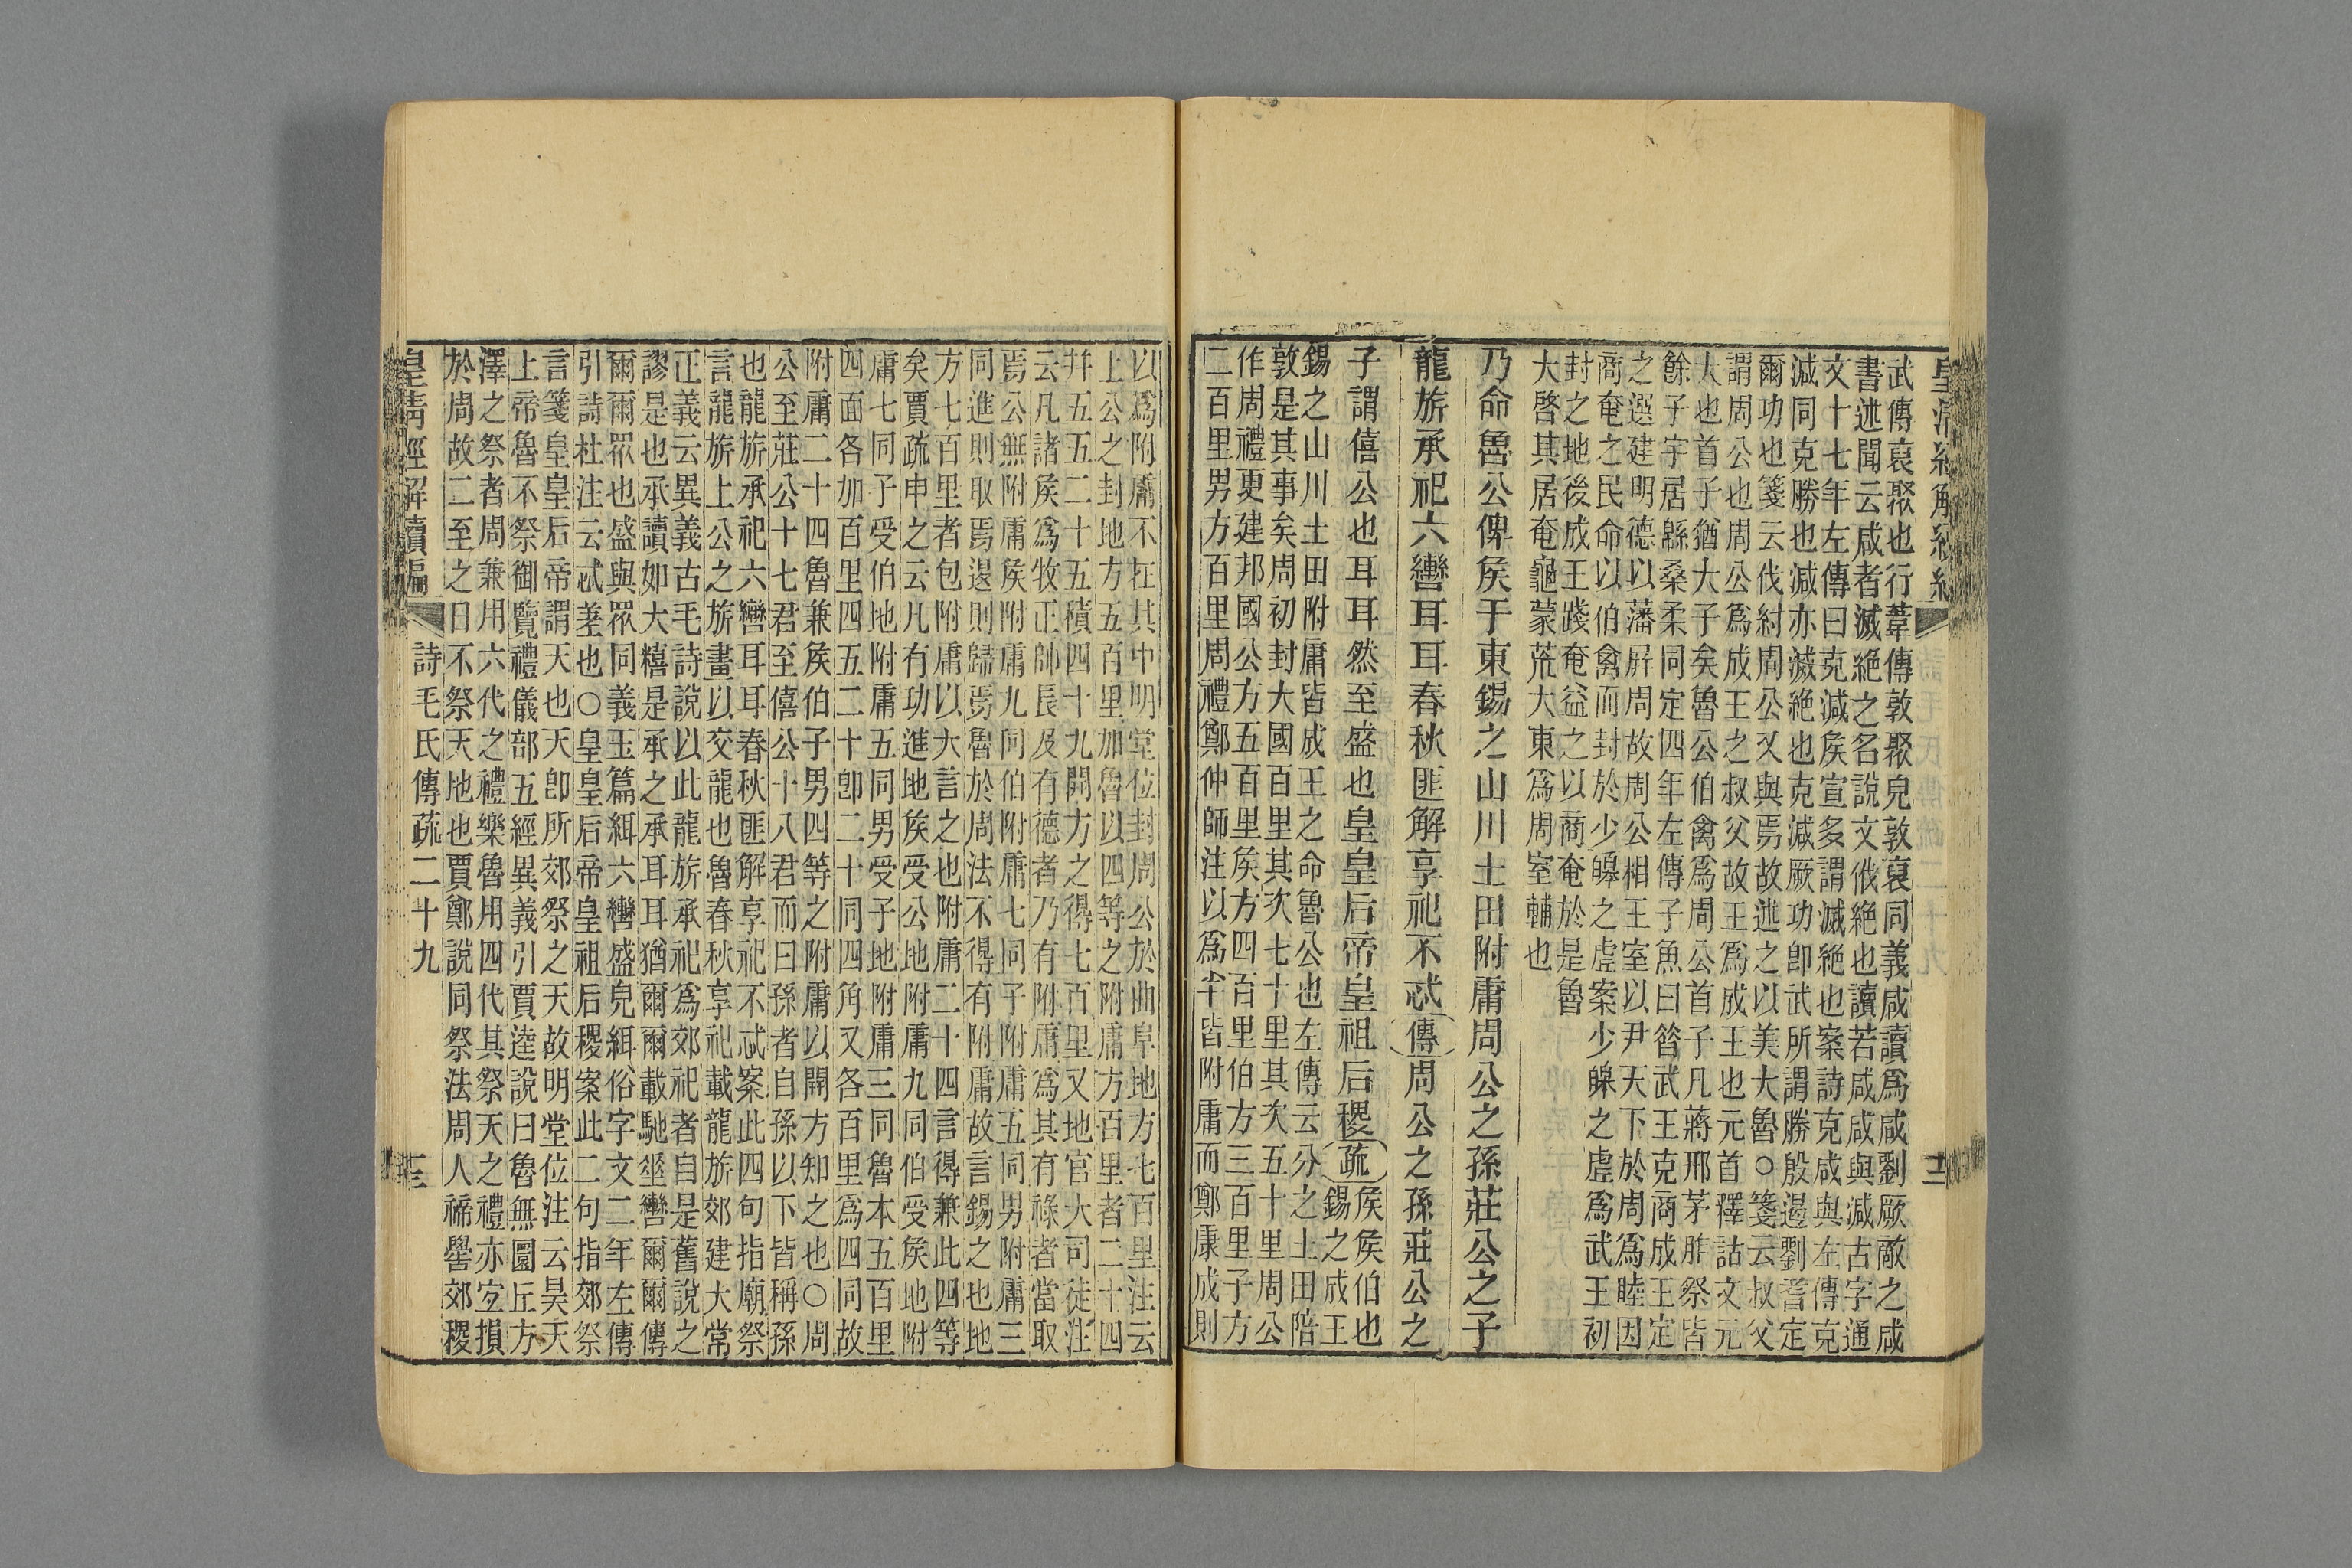 武傳裒聚也行葦傳敦聚皃敦裒同義咸讀爲咸劉厥敵之咸
書述聞云咸者滅絶之名說文㦰絶也讀若咸咸與減古字通
文十七年左傳曰克減矦宣多謂滅絶也案詩克咸與左傳克
減同克勝也減亦滅絶也克減厥功卽武所謂勝殷遏劉耆定
爾功也箋云伐紂周公又與焉故述之以美大魯○箋云叔父
謂周公也周公爲成王之叔父故王爲成王也元首釋詁文元
大也首子猶大子矣魯公伯禽爲周公首子凡蔣邢茅胙祭皆
餘子字居緜桑柔同定四年左傳子魚曰昝武王克商成王定
之選建明德以藩屏周故周公相王室以尹天下於周爲睦因
商奄之民命以伯禽而封於少皞之虛案少皞之虛爲武王初
封之地後成王踐奄益之以商奄於是魯
大啓其居奄龜蒙荒大東爲周室輔也
乃命魯公俾矦于東錫之山川土田附庸周公之孫莊公之子
龍旂承祀六轡耳耳春秋匪解享祀不忒傳周公之孫莊公之
子謂僖公也耳耳然至盛也皇皇后帝皇祖后稷疏矦矦伯也
錫之成王
錫之山川土田附庸皆成王之命魯公也左傳云分之土田陪
敦是其事矣周初封大國百里其次七十里其次五十里周公
作周禮更建邦國公方五百里矦方四百里伯方三百里子方
二百里男方百里周禮鄭仲師注以爲半皆附庸而鄭康成則
以爲附庸不在其中明堂位封周公於曲阜地方七百里注云
上公之封地方五百里加魯以四等之附庸方百里者二十四
幷五五二十五積四十九開方之得七百里又地官大司徒注
云凡諸矦爲牧正帥長及有德者乃有附庸爲其有祿者當取
焉公無附庸矦附庸九同伯附庸七同子附庸五同男附庸三
同進則取焉退則歸焉魯於周法不得有附庸故言錫之也地
方七百里者包附庸以大言之也附庸二十四言得兼此四等
矣賈疏申之云凡有功進地矦受公地附庸九同伯受矦地附
庸七同子受伯地附庸五同男受子地附庸三同魯本五百里
四面各加百里四五二十卽二十同四角又各百里爲四同故
附庸二十四魯兼矦伯子男四等之附庸以開方知之也○周
公至莊公十七君至僖公十八君而曰孫者自孫以下皆稱孫
也龍旂承祀六轡耳耳春秋匪解享祀不忒案此四句指廟祭
言龍旂上公之旂畫以交龍也魯春秋享祀載龍旂郊建大常
正義云異義古毛詩說以此龍旂承祀爲郊祀者自是舊說之
謬是也承讀如大糦是承之承耳耳猶爾爾載馳𡋲轡爾爾傳
爾爾眾也盛與眾同義玉篇緷六轡盛皃緷俗字文二年左傳
引詩杜注云忒差也○皇皇后帝皇祖后稷案此二句指郊祭
言箋皇皇后帝謂天也天卽所郊祭之天故明堂位注云昊天
上帝魯不祭御覽禮儀部五經異義引賈逵說曰魯無圜丘方
澤之祭者周兼用六代之禮樂魯用四代其祭天之禮亦宜損
於周故二至之日不祭天地也賈鄭說同祭法周人禘嚳郊稷
皇淸經解續編
詩毛氏傳疏二十九